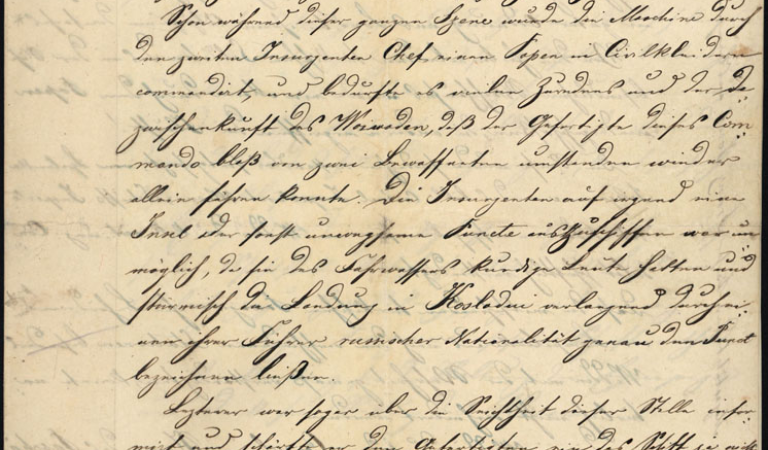 Schon während dieser ganzen Szene wurde die Maschine durch
den zweiten Insurgenten Chef, einen Popen in Civilkleidern
commandirt, und bedurfte es vielen Zuredens und der Da-
zwischenkunft des Woiwoden, daß der Gefertigte dieses Com-
mando bloß von zwei Bewaffneten umstanden wieder
allein führen konnte. Die Insurgenten auf irgend eine
Insel oder sonst unwegsame Puncte auszuschiffen war un-
möglich, da sie des Fahrwassers kundige Leute hatten und
stürmisch die Landung in Kosladui verlangend durch ei-
nen ihrer Führer rumischer Nationalität genau den Punct
bezeichnen ließen.
Lezterer war sogar über die Seichtheit dieser Stelle infor-
mirt und schärfte er dem Gefertigten ein das Schiff ja nicht